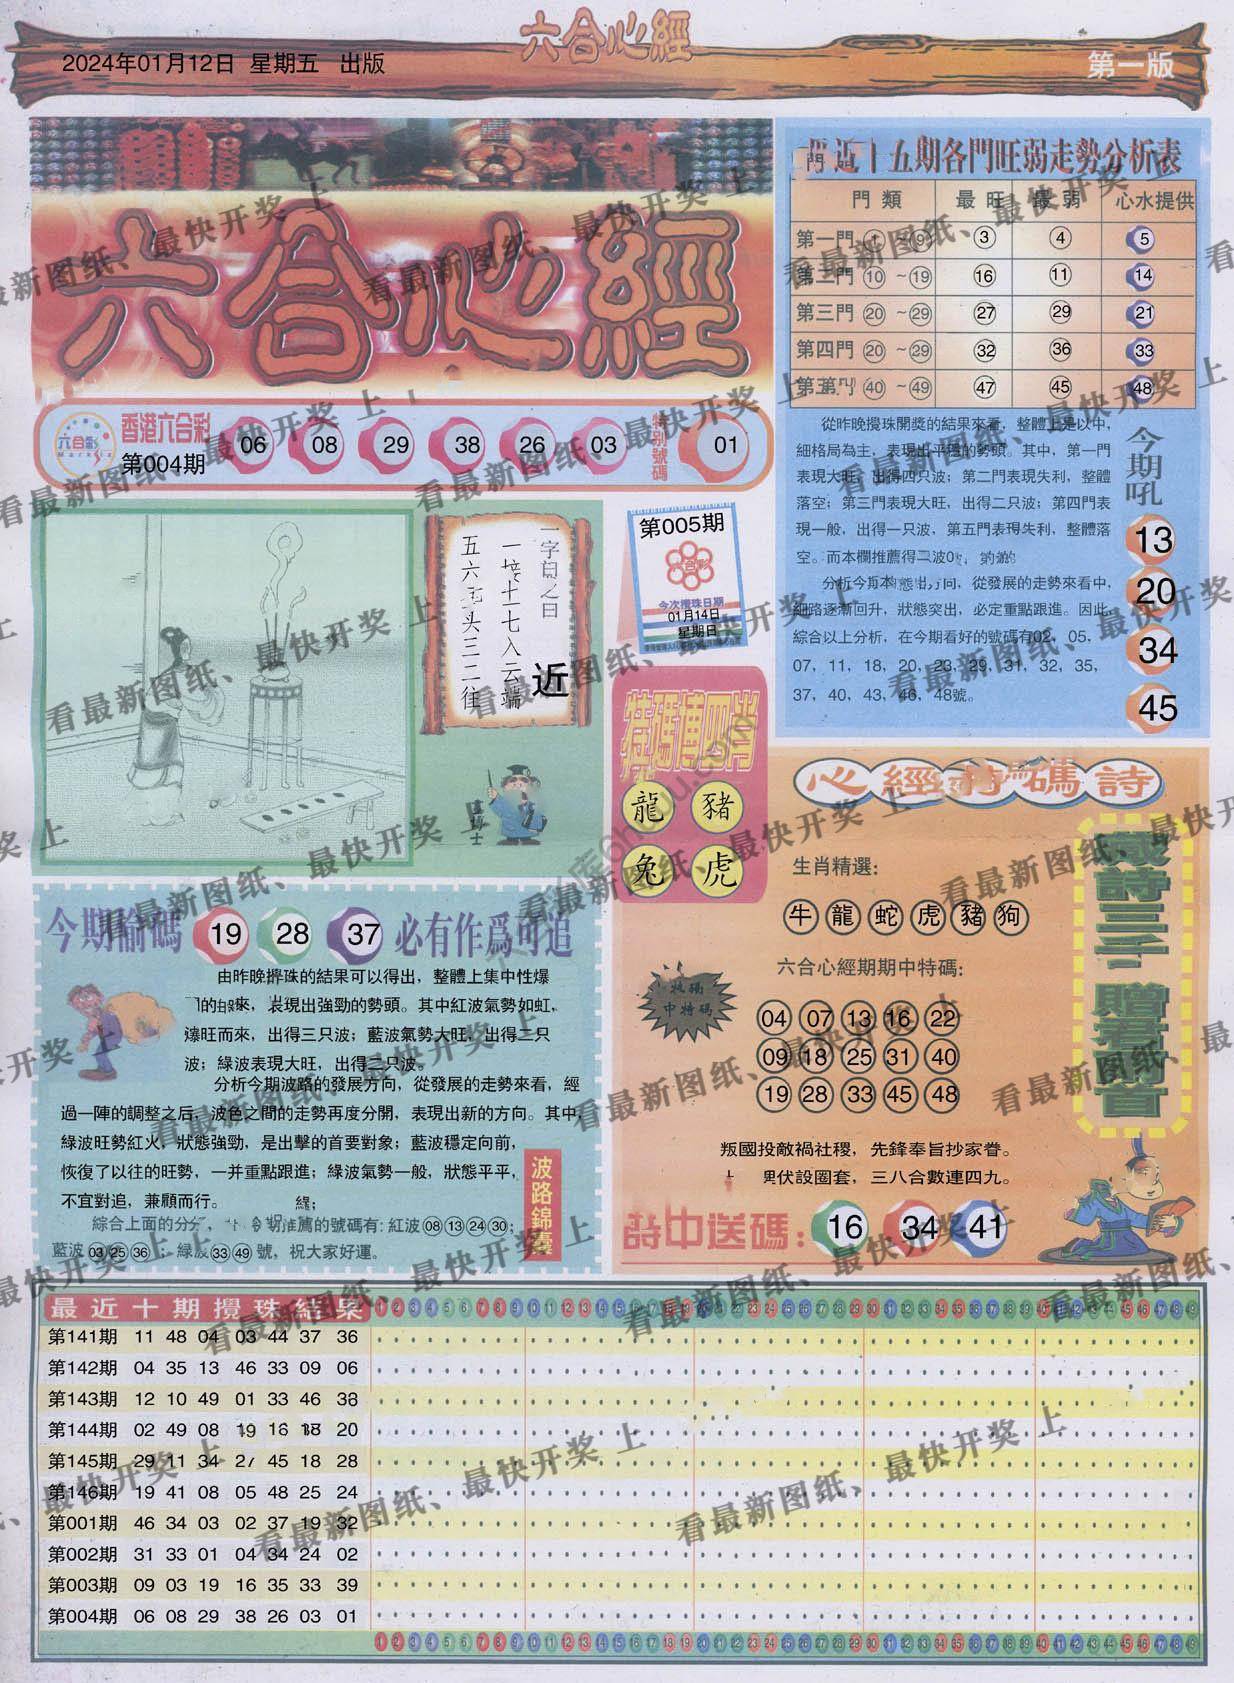 六合心經
2024年01月12日 星期五 出版
第一版
六合心經
香港六合彩
第004期
06 08 29 38 26 03
特别號碼
01
近十五期各門旺弱走勢分析表
門類 最旺 最弱 心水提供
第一門 ① ~ ⑨ ③ ④ 5
第二門 ⑩ ~ ⑲ ⑯ ⑪ 14
第三門 ⑳ ~ ㉙ ㉗ ㉙ 21
第四門 ⑳ ~ ㉙ ㉜ ㊱ 33
第五門 ㊵ ~ ㊾ ㊼ ㊺ 48
從昨晚攪珠開獎的結果來看，整體上是以中，
細格局為主，表現出平穩的勢頭。其中，第一門
表現大旺，出得四只波；第二門表現失利，整體
落空；第三門表現大旺，出得二只波；第四門表
現一般，出得一只波，第五門表現失利，整體落
空。而本欄推薦得二波
分析今期 方向，從發展的走勢來看中，
細路逐漸回升，狀態突出，必定重點跟進。因此，
綜合以上分析，在今期看好的號碼有02，05，
07，11，18，20，23，29，31，32，35，
37，40，43，46，48號。
今期吼
13
20
34
45
一字曰之曰
近
一接十七入云端
五六 头三二往
第005期
六合彩
今次攪珠日期
01月14日
星期日
博士
特碼博四肖
龍 豬
兔 虎
今期偷碼 19 28 37 必有作爲可追
由昨晚攪珠的結果可以得出，整體上集中性爆
來，表現出強勁的勢頭。其中紅波氣勢如虹，
爆旺而來，出得三只波；藍波氣勢大旺，出得二只
波；綠波表現大旺，出得二只波。
分析今期波路的發展方向，從發展的走勢來看，經
過一陣的調整之后，波色之間的走勢再度分開，表現出新的方向。其中，
綠波旺勢紅火，狀態強勁，是出擊的首要對象；藍波穩定向前，
恢復了以往的旺勢，一并重點跟進；綠波氣勢一般，狀態平平，
不宜對追，兼顧而行。
綜合上面的分 推薦的號碼有：紅波⑧⑬㉔㉚；
藍波03㉕㊱；綠波㉝㊾號，祝大家好運。
波路錦囊
心經特碼詩
生肖精選：
牛 龍 蛇 虎 豬 狗
六合心經期期中特碼：
特碼
中特碼
04 07 13 16 22
09 18 25 31 40
19 28 33 45 48
叛國投敵禍社稷，先鋒奉旨抄家眷。
伏設圈套，三八合數連四九。
詩中送碼：16 34 41
最近十期攪珠結果 1 2 3 4 5 6 7 8 9 10 11 12 13 14 15 16 17 18 19 20 21 22 23 24 25 26 27 28 29 30 31 32 33 34 35 36 37 38 39 40 41 42 43 44 45 46 47 48 49
第141期 11 48 04 03 44 37 36
第142期 04 35 13 46 33 09 06
第143期 12 10 49 01 33 46 38
第144期 02 49 08 19 16 18 20
第145期 29 11 34 27 45 18 28
第146期 19 41 08 05 48 25 24
第001期 46 34 03 02 37 19 32
第002期 31 33 01 04 34 24 02
第003期 09 03 19 16 35 33 39
第004期 06 08 29 38 26 03 01
1 2 3 4 5 6 7 8 9 10 11 12 13 14 15 16 17 18 19 20 21 22 23 24 25 26 27 28 29 30 31 32 33 34 35 36 37 38 39 40 41 42 43 44 45 46 47 48 49
看最新图纸、最快开奖 上